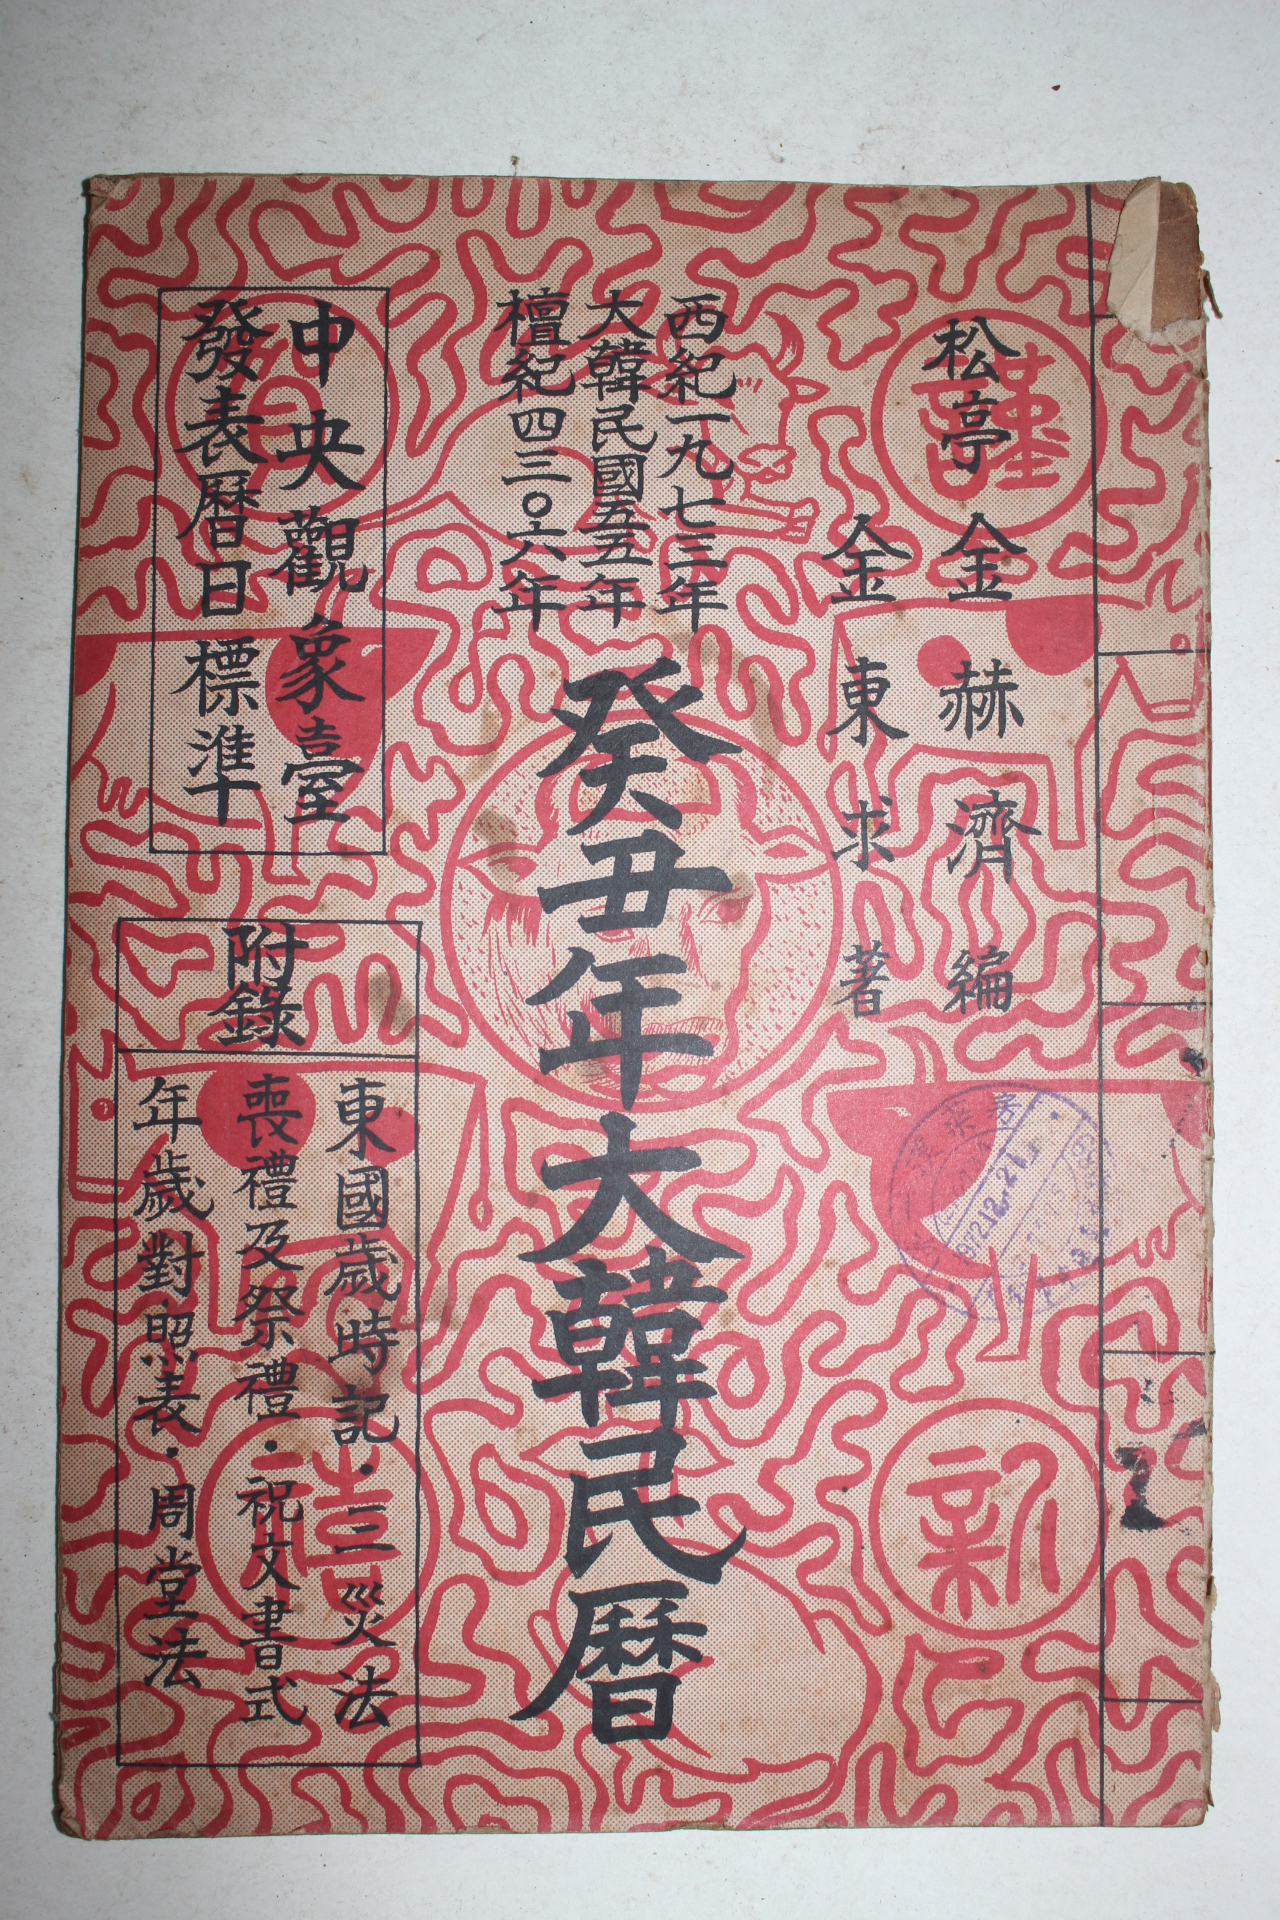 松亭 金赫濟 編
金東求 著
西紀一九七三年
大韓民國五五年
檀紀四三〇六年
癸丑年大韓民曆
中央觀象臺
發表曆日標準
附錄
東國歲時記·三災法
喪禮及祭禮·祝文書式
年歲對照表·周堂法
謹
新
禧